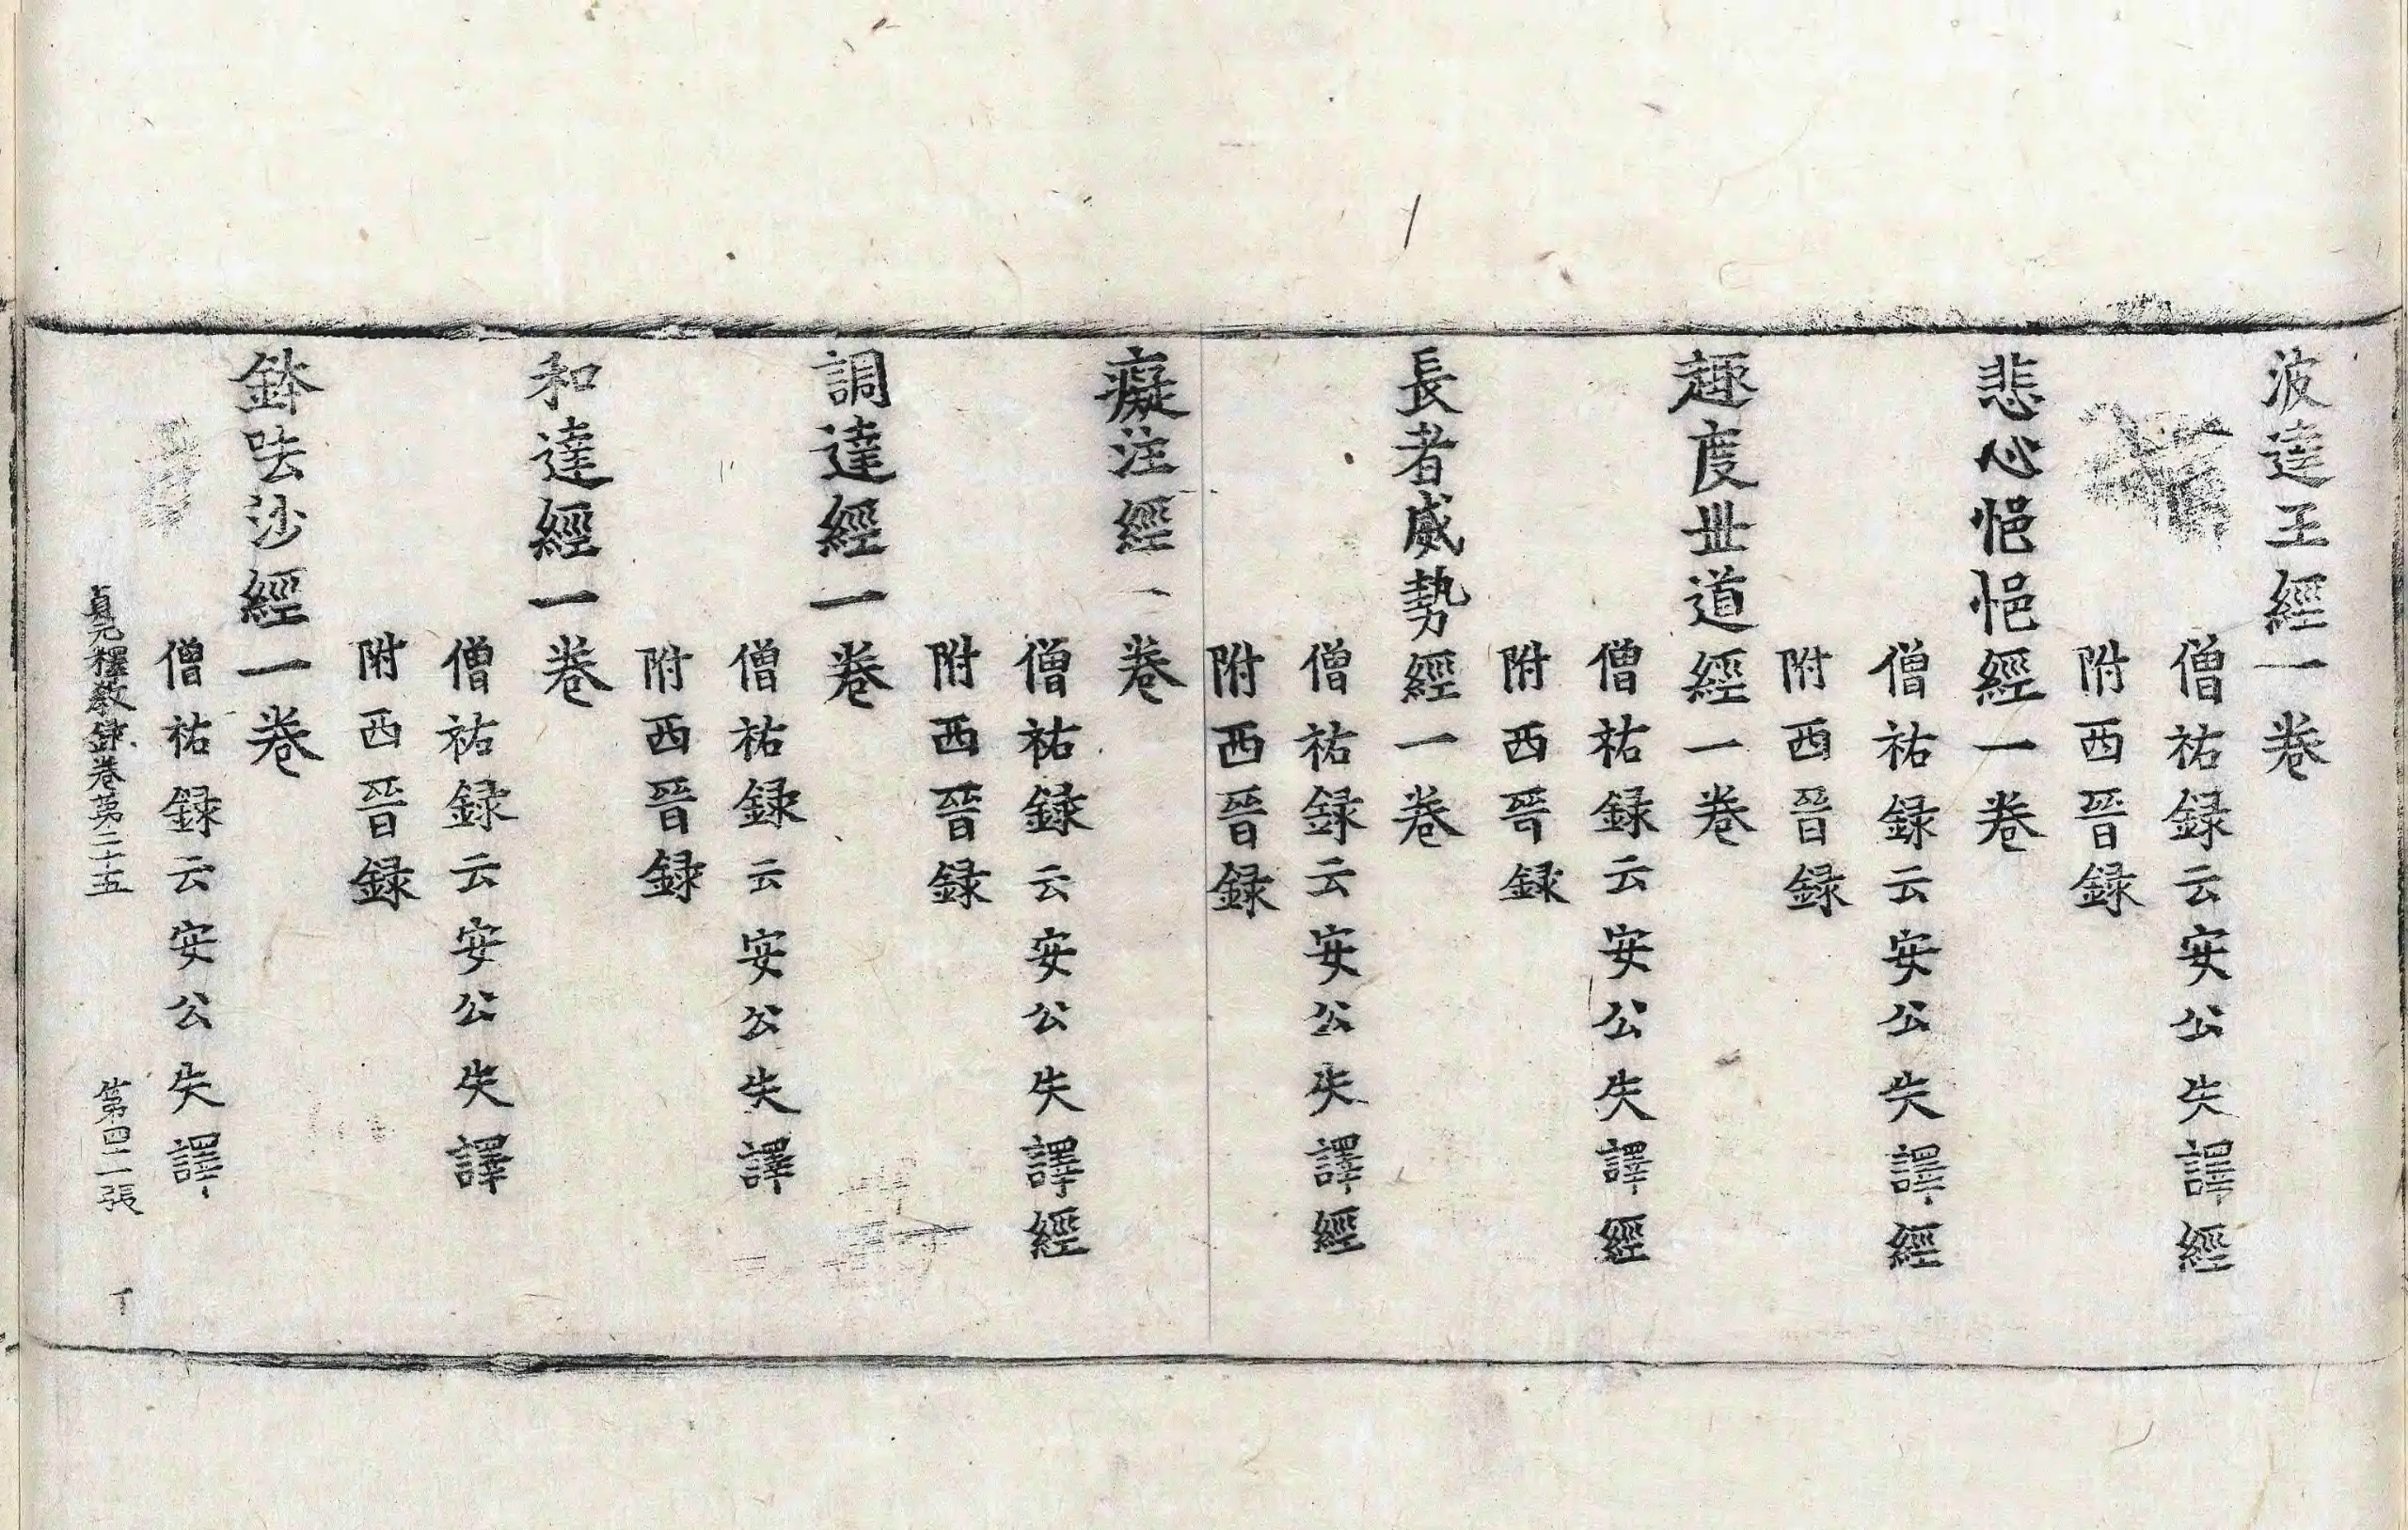 波達王經一卷
僧祐録云安公失譯經
附西晉録
悲心悒悒經一卷
僧祐録云安公失譯經
附西晉録
趣度丗道經一卷
僧祐録云安公失譯經
附西晉録
長者威勢經一卷
僧祐録云安公失譯經
附西晉録
癡注經一卷
僧祐録云安公失譯經
附西晉録
調達經一卷
僧祐録云安公失譯
附西晉録
和達經一卷
僧祐録云安公失譯
附西晉録
鉢呿沙經一卷
僧祐録云安公失譯
貞元釋教録卷苐二十五 第四二張 丁